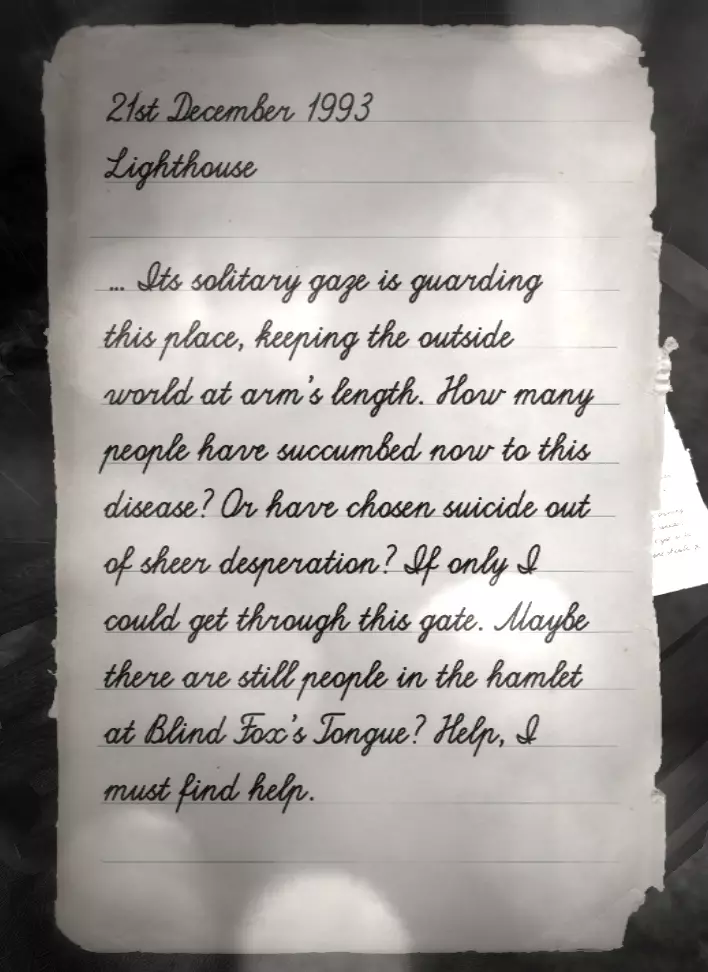 21st December 1993
Lighthouse
... Its solitary gaze is guarding
this place, keeping the outside
world at arm's length. How many
people have succumbed now to this
disease? Or have chosen suicide out
of sheer desperation? If only I
could get through this gate. Maybe
there are still people in the hamlet
at Blind Fox's Tongue? Help, I
must find help.